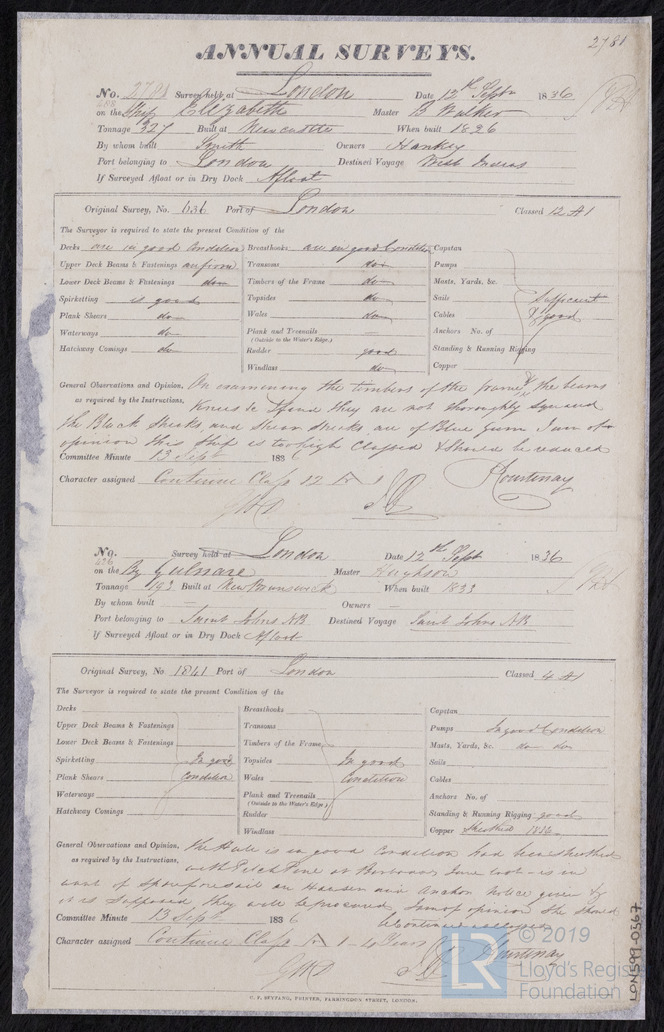 2781
ANNUAL SURVEYS.
No. 2781 Survey held at London Date 12th Septr 1836
on the Ship Elizabeth Master B Walker
Tonnage 327 Built at Newcastle When built 1826
By whom built Smith Owners Hankey
Port belonging to London Destined Voyage West Indies
If Surveyed Afloat or in Dry Dock Afloat
Original Survey, No. 636 Port of London Classed 12 A1
The Surveyor is required to state the present Condition of the
Decks are in good Condition Breasthooks are in good Condition Capstan
Upper Deck Beams & Fastenings are firm Transoms do Pumps
Lower Deck Beams & Fastenings do Timbers of the Frame do Masts, Yards, &c.
Spirketting is good Topsides do Sails Sufficient
Plank Shears do Wales do Cables & good
Waterways do Plank and Treenails Anchors No. of
(Outside to the Water's Edge)
Hatchway Comings do Rudder good Standing & Running Rigging
Windlass do Copper
General Observations and Opinion, On examining the timbers of the frame & the beams
as required by the Instructions, Knees &c I find they are not thoroughly squared
the Black Sheaks, and Shear sheaks are of Blue Gum I am of
opinion this Ship is too high Classed & should be reduced
Committee Minute 13 Sept 1836
Character assigned Continue Class 12 A 1 Courtenay
No. Survey held at London Date 12th Sept 1836
on the Bg Gulnare Master Hughson
Tonnage 193 Built at New Brunswick When built 1833
By whom built — Owners —
Port belonging to Saint Johns NB Destined Voyage Saint Johns NB
If Surveyed Afloat or in Dry Dock Afloat
Original Survey, No 1841 Port of London Classed 4 A1
The Surveyor is required to state the present Condition of the
Decks Breasthooks Capstan
Upper Deck Beams & Fastenings Transoms Pumps In good Condition
Lower Deck Beams & Fastenings Timbers of the Frame Masts, Yards, &c. do do
Spirketting In good Topsides In good Sails
Plank Shears Condition Wales Condition Cables
Waterways Plank and Treenails Anchors No. of
(Outside to the Water's Edge)
Hatchway Comings Rudder Standing & Running Rigging good
Windlass Copper Sheathed
General Observations and Opinion, The Hull is in good Condition had been sheathed
as required by the Instructions, with Pitch Pine at is in
want of Spare foresail an Hawser and Anchor Notice given &
it is supposed they will be procured I am of opinion She should
be Continued
Committee Minute 13 Sept 1836
Character assigned Continue Class A 1 - 4 Years Courtenay
G. F. SEYFANG, PRINTER, FARRINGDON STREET, LONDON.
LR © 2019
Lloyd's Register
Foundation
LON599-0367